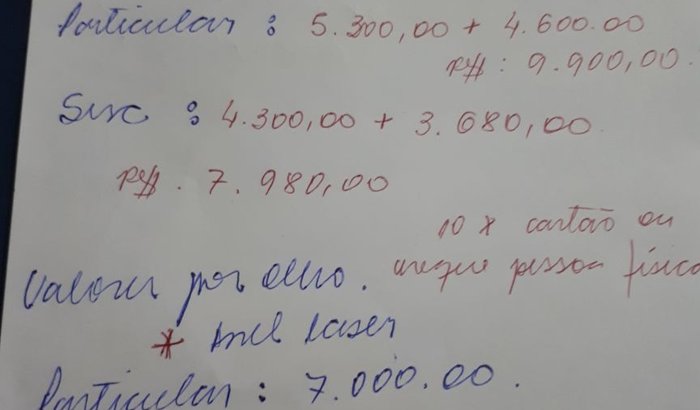 Particular : 5.300,00 + 4.600.00
R$ : 9.900,00.
: 4.300,00 + 3.680,00
R$ . 7.980,00
10 x cartão ou
Valores por olho. cheque pessoa física
* laser
Particular : 7.000.00.